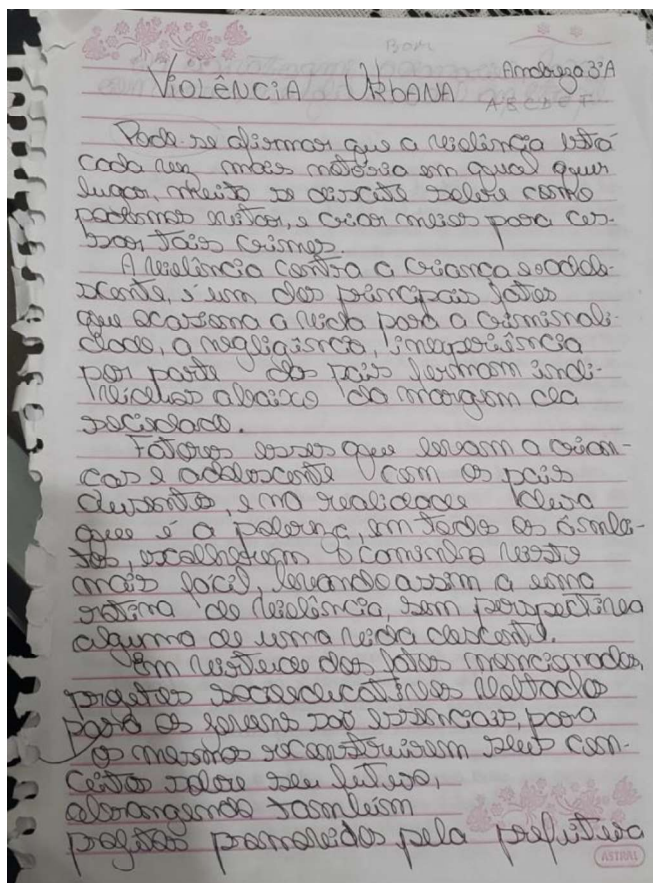 Bom
Andreza 3ºA
VIOLÊNCIA URBANA
A B C D E F
Pode se afirmar que a violência está
cada vez mais notória em qual quer
lugar, muito se discute sobre como
podemos evitar, e criar meios para ces-
sar tais crimes.
A violência contra a criança e o adole-
scente, é um dos principais fatos
que ocasiona a vida para a criminali-
dade, a negligência, inexperiência
por parte dos pais formam indi-
víduos abaixo da margem da
sociedade.
Fatores esses que levam a crian-
cas e adolescente com os pais
ausentes, e na realidade
que é a pobreza, em todos os âmbi-
tos, escolherem o caminho visto
mais facil, levando assim a uma
rotina de violência, sem perspectiva
alguma de uma vida descente.
Em virtude dos fatos mencionados,
projetos socioeducativos voltados
para os jovens são essenciais, para
os mesmos reconstruirem seus con-
ceitos sobre seu futuro,
abrangendo também
projetos promovidos pela prefeitura
ASTRAL